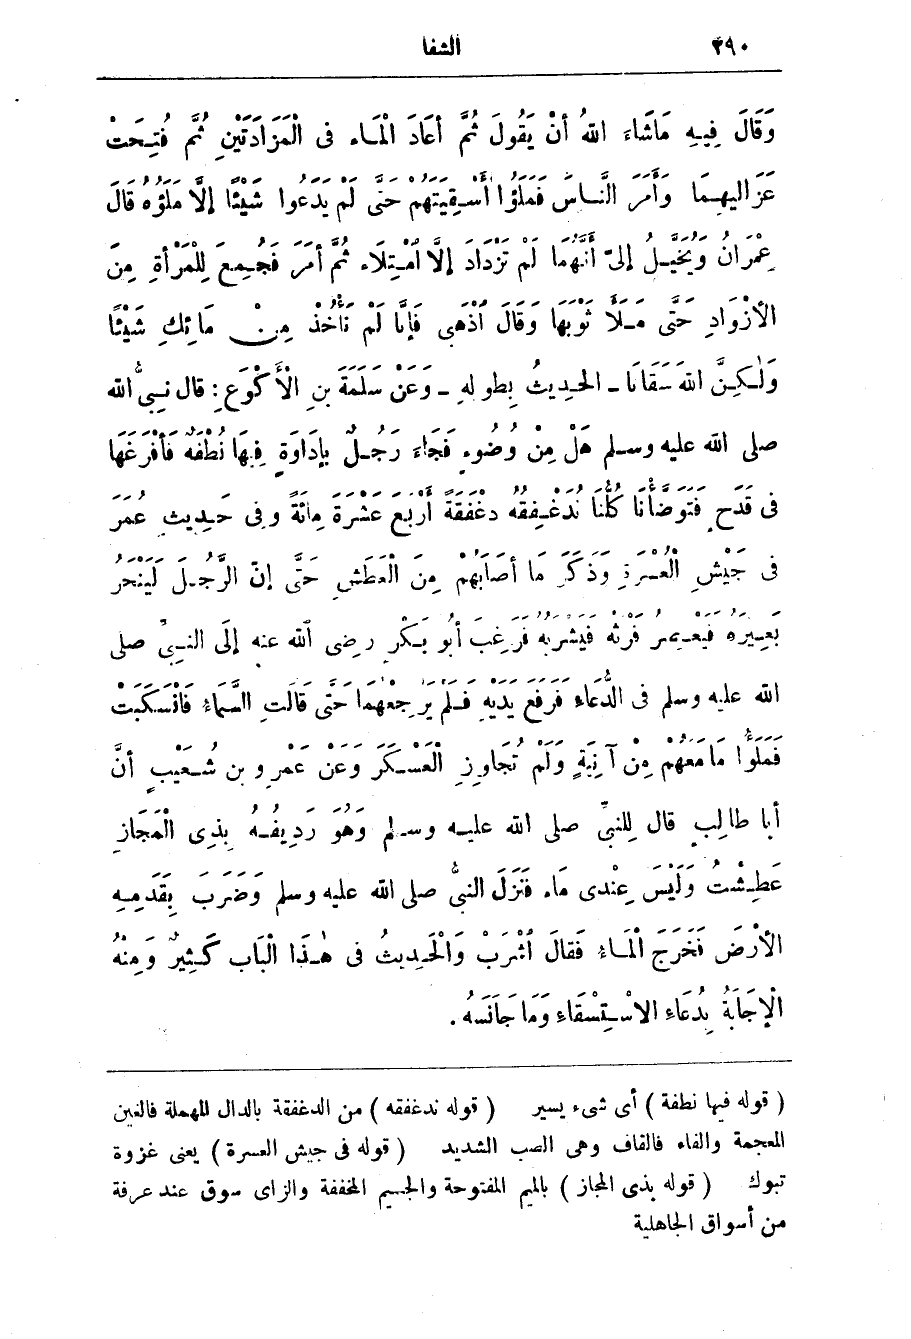 ٢٩٠ الشفا
وَقَالَ فِيهِ مَاشَاءَ اللهُ أَنْ يَقُولَ ثُمَّ أَعَادَ الْمَاءَ فِى الْمَزَادَتَيْنِ ثُمَّ فُتِحَتْ
عَزَالِيهِمَا وَأَمَرَ النَّاسَ فَمَلَؤُا أَسْقِيَتَهُمْ حَتَّى لَمْ يَدَعُوا شَيْئًا إِلَّا مَلَؤُهُ قَالَ
عِمْرَانُ وَيُخَيَّلُ إِلَىَّ أَنَّهُمَا لَمْ تَزْدَادَ إِلَّا امْتِلَاءً ثُمَّ أَمَرَ فَجُمِعَ لِلْمَرْأَةِ مِنَ
الْأَزْوَادِ حَتَّى مَلَأَ ثَوْبَهَا وَقَالَ اذْهَبِى فَإِنَّا لَمْ نَأْخُذْ مِنْ مَائِكِ شَيْئًا
وَلٰكِنَّ اللهَ سَقَانَا ـ الحَدِيثُ بِطُولِهِ ـ وَعَنْ سَلَمَةَ بنِ الْأَكْوَعِ : قال نَبِىُّ الله
صلى الله عليه وسلم هَلْ مِنْ وُضُوءٍ فَجَاءَ رَجُلٌ بِإدَاوَةٍ فِيهَا نُطْفَةٌ فَأَفْرَغَهَا
فى قَدَحٍ فَتَوَضَّأْنَا كُلُّنَا نُدَغْفِقُهُ دَغْفَقَةً أَرْبَعَ عَشْرَةَ مِائَةً وفى حَدِيثِ عُمَرَ
فى جَيْشِ الْعُسْرَةِ وَذَكَرَ مَا أَصَابَهُمْ مِنَ الْعَطَشِ حَتَّى إِنَّ الرَّجُلَ لَيَنْحَرُ
بَعِيرَهُ فَيَعْصِرُ فَرْثَهُ فَيَشْرَبُهُ فَرَغِبَ أَبُو بَكْرٍ رضى الله عنه إِلَى النَّبِىِّ صلى
الله عليه وسلم فى الدُّعَاءِ فَرَفَعَ يَدَيْهِ فَلَمْ يَرْجِعْهُمَا حَتَّى قَالَتِ السَّمَاءُ فَانْسَكَبَتْ
فَمَلَؤُا مَا مَعَهُمْ مِنْ آنِيَةٍ وَلَمْ تُجَاوِزِ الْعَسْكَرَ وَعَنْ عَمْرِو بنِ شُعَيْبٍ أَنَّ
أبا طالِبٍ قالَ لِلنَّبِىِّ صلى الله عليه وسلم وَهُوَ رَدِيفُهُ بِذِى الْمَجَازِ
عَطِشْتُ وَلَيْسَ عِنْدِى مَاءٌ فَنَزَلَ النبىُّ صلى الله عليه وسلم وَضَرَبَ بِقَدَمِهِ
الْأَرْضَ فَخَرَجَ الْمَاءُ فَقَالَ اشْرَبْ وَالْحَدِيثُ فى هٰذَا الْبَابِ كَثِيرٌ وَمِنْهُ
الْإِجَابَةُ بِدُعَاءِ الِاسْتِسْقَاءِ وَمَا جَانَسَهُ .
( قوله فيها نطفة ) أى شىء يسير ( قوله ندغفقه ) من الدغفقة بالدال المهملة فالغين
المعجمة والفاء فالقاف وهى الصب الشديد ( قوله فى جيش العسرة ) يعنى غزوة
تبوك ( قوله بذى المجاز ) بالميم المفتوحة والجيم المخففة والزاى سوق عند عرفة
من أسواق الجاهلية